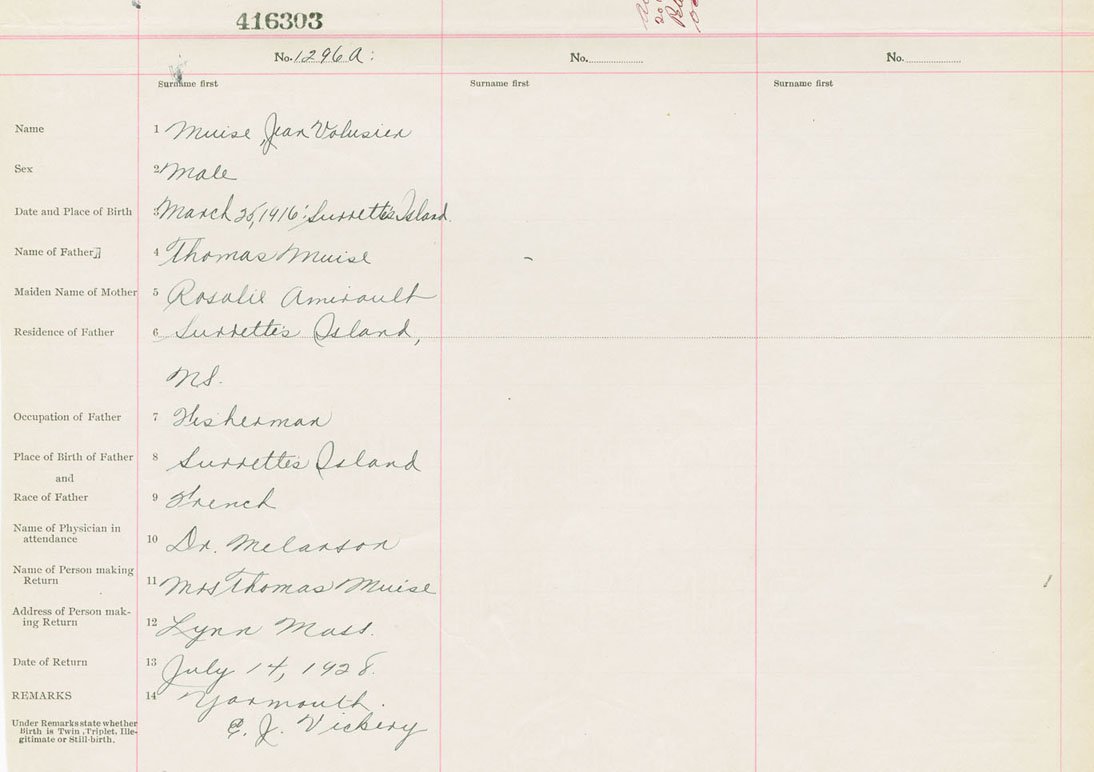 416303
No. 1296A:
No.
No.
Surname first
Surname first
Surname first
Name 1 Muise, Jean Volusien
Sex 2 Male
Date and Place of Birth 3 March 25, 1916: Surrette's Island
Name of Father 4 Thomas Muise
Maiden Name of Mother 5 Rosalie Amirault
Residence of Father 6 Surrette's Island,
N.S.
Occupation of Father 7 Fisherman
Place of Birth of Father 8 Surrette's Island
and
Race of Father 9 French
Name of Physician in
attendance 10 Dr. Melanson
Name of Person making
Return 11 Mrs Thomas Muise
Address of Person mak-
ing Return 12 Lynn Mass.
Date of Return 13 July 14, 1928.
REMARKS 14 Yarmouth.
Under Remarks state whether
Birth is Twin, Triplet, Ille-
gitimate or Still-birth.
E. J. Vickery